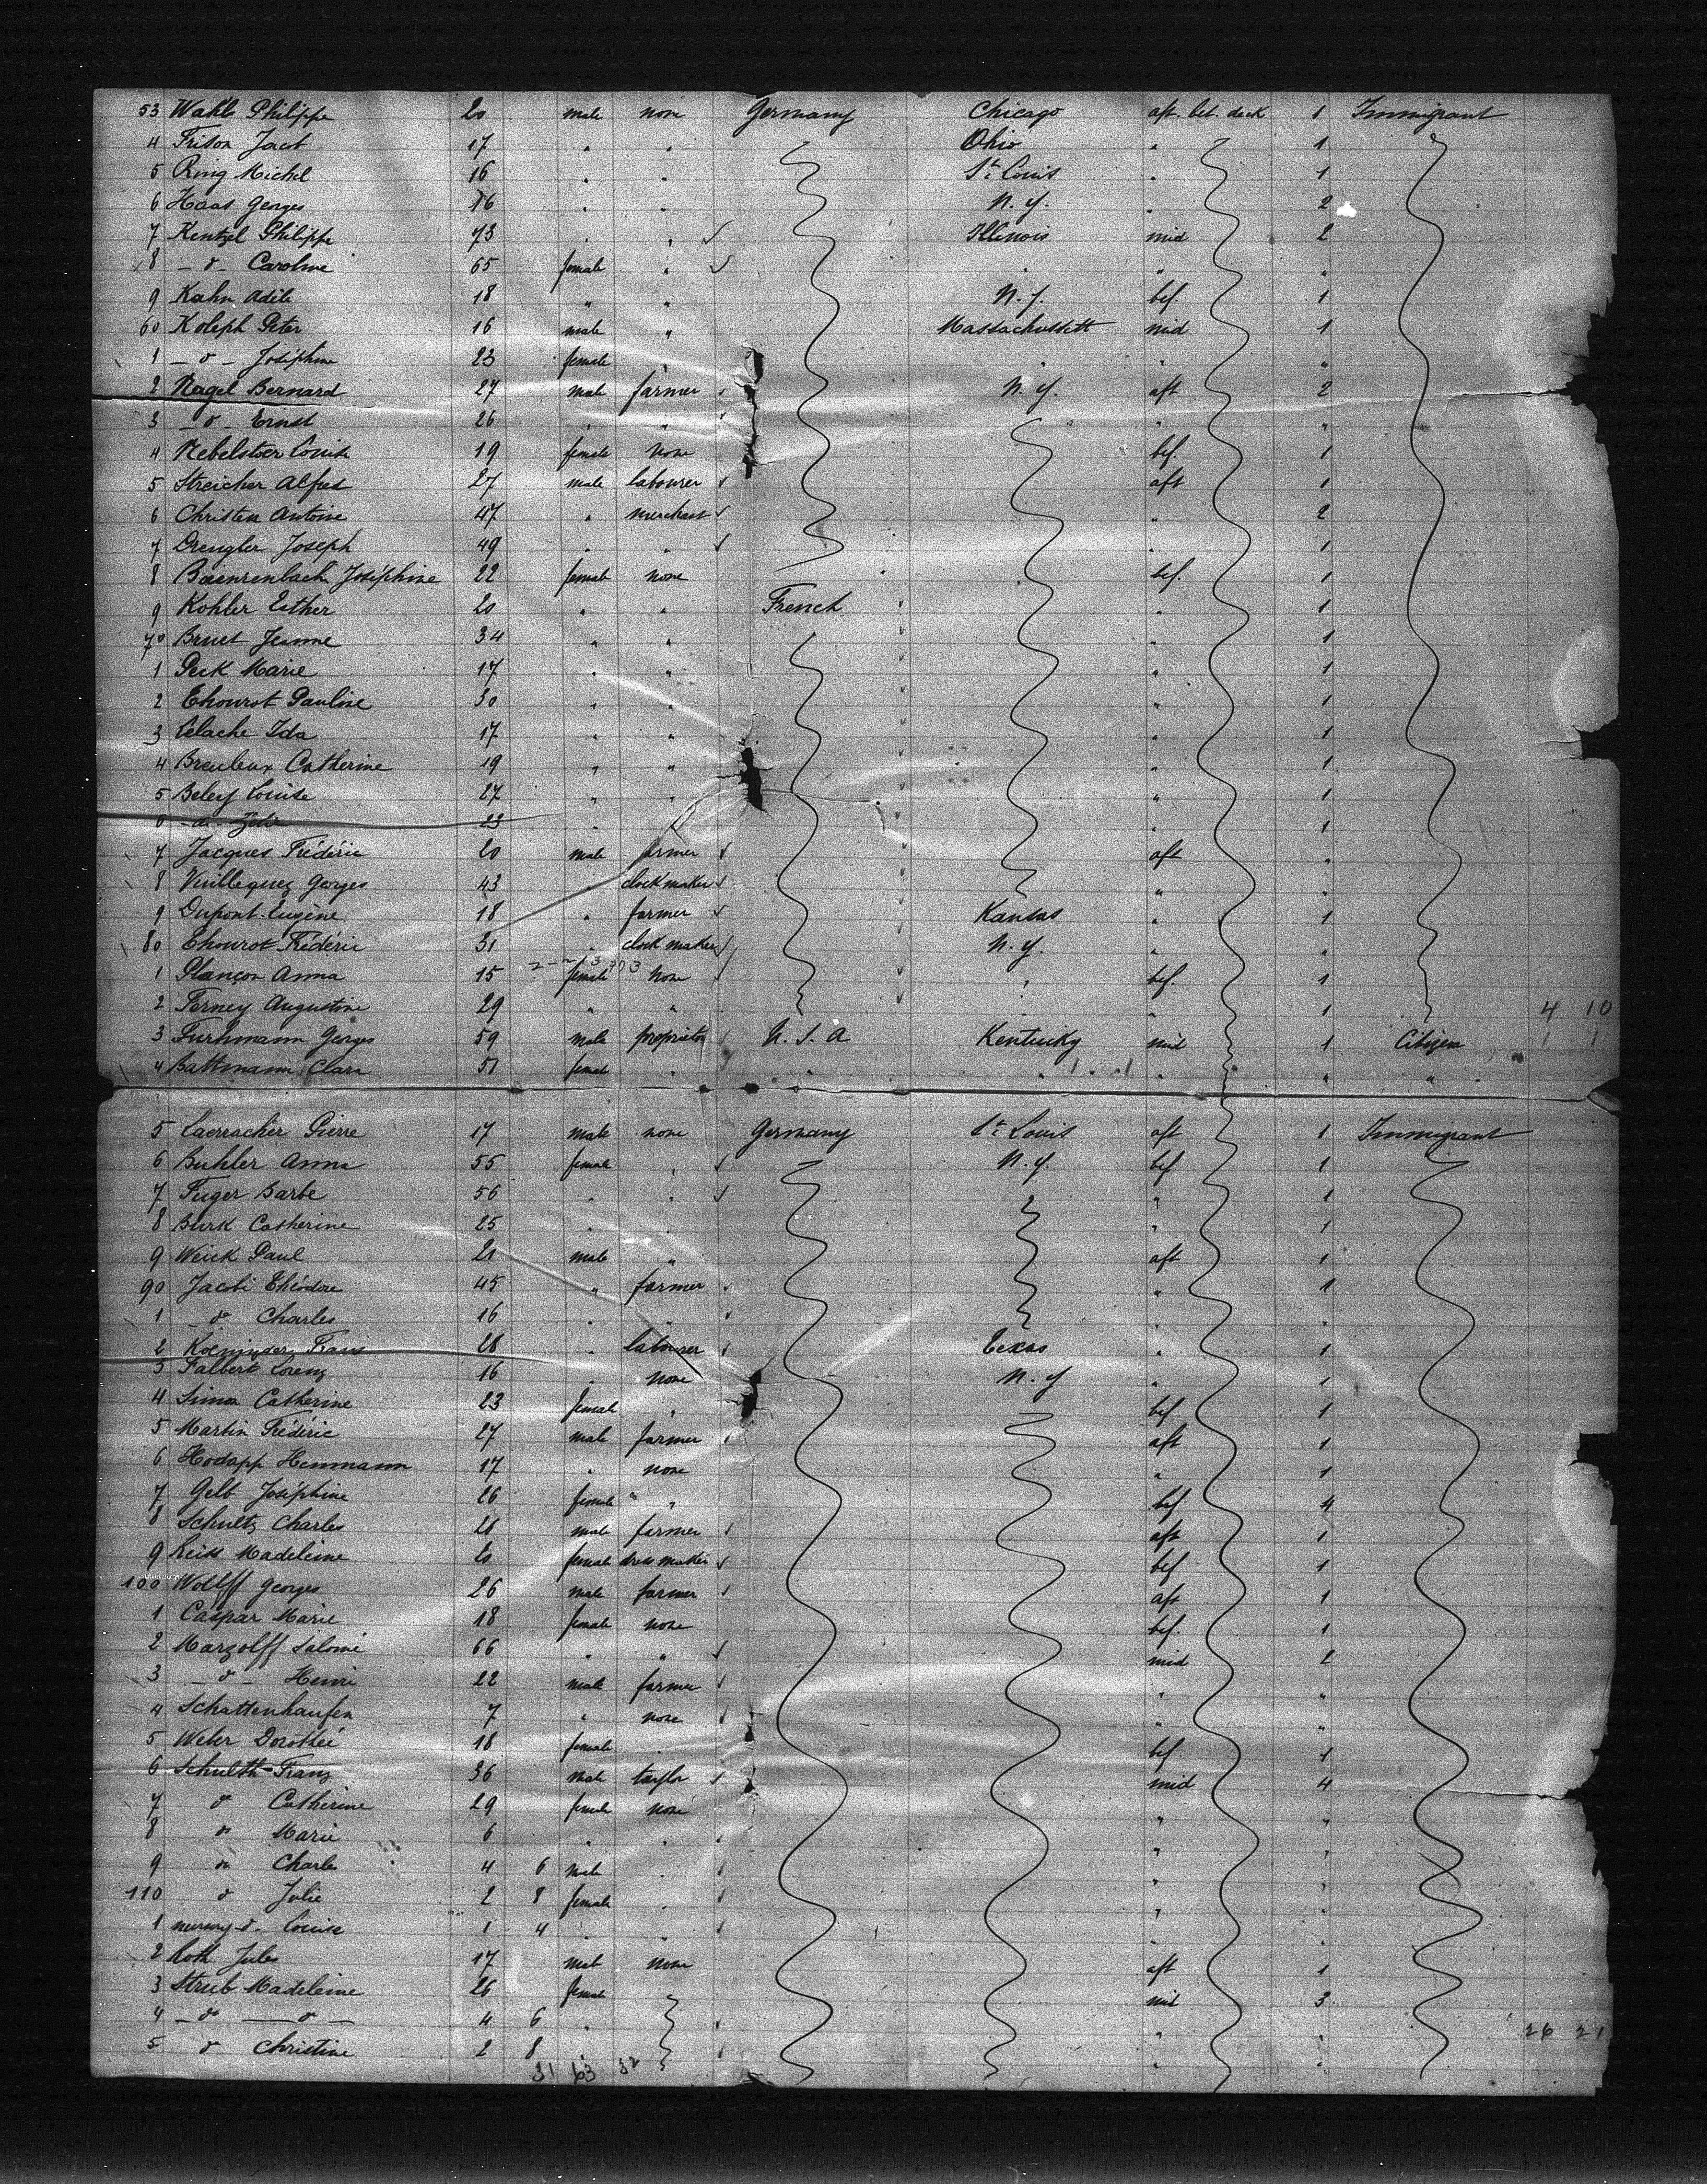 53 Wahl Philippe 20 male none Germany Chicago aft. bet. deck 1 Immigrant
4 Frison Jacob 17 " " Ohio " 1
5 Ring Michel 16 " " St Louis " 1
6 Haas Georges 16 " " N. Y. " 2
7 Kentzel Philippe 73 " " Illinois mid 2
8 - d - Caroline 65 female " " " "
9 Kahn Adèle 18 " " N. Y. bef. 1
60 Koleph Peter 16 male " Massachussett mid 1
1 - d - Joséphine 23 female " " " "
2 Nagel Bernard 27 male farmer N. Y. aft 2
3 - d - Ernst 26 " " " "
4 Nebelstoer Louise 19 female none bef. 1
5 Streicher Alfred 27 male labourer aft 1
6 Christen Antoine 47 " merchant " 2
7 Drengler Joseph 49 " " " 1
8 Baenrenbach Joséphine 22 female none bef. 1
9 Kohler Esther 20 " " French " 1
70 Bruet Jeanne 34 " " " 1
1 Peck Marie 17 " " " 1
2 Thourot Pauline 30 " " " 1
3 Lélache Ida 17 " " " 1
4 Breuleux Catherine 19 " " " 1
5 Beley Louise 27 " " " 1
6 - d - 23 " " 1
7 Jacques Frédéric 20 male farmer aft "
8 Georges 43 " clockmaker " "
9 Dupont Eugène 18 " farmer Kansas " 1
80 Thourot Frédéric 31 " clock maker N. Y. "
1 Plançon Anna 15 female none " bef. 1
2 Ferney Augustine 29 " " " 1 4 10
3 Furhmann Georges 59 male proprietor U. S. A Kentucky mid 1 Citizen 1 1
4 Battmann Clara 51 female " " " " " "
5 Laerracher Pierre 17 male none Germany St Louis aft 1 Immigrant
6 Buhler Anna 55 female " N. Y. bef 1
7 Fuger Barbe 56 " " " 1
8 Burk Catherine 25 " " " 1
9 Weick Paul 21 male " aft 1
90 Jacobi Théodore 45 " farmer " 1
1 - d Charles 16 " " " "
2 Koeninger Franz 28 " labourer Texas " 1
3 Falbert Lorenz 16 " none N. Y " 1
4 Simon Catherine 23 female " bef. 1
5 Martin Frédéric 27 male farmer aft 1
6 Hodapp Hermann 17 " none " 1
7 Gelb Joséphine 26 female " bef. 4
8 Schultz Charles 28 male farmer aft 1
9 Reiss Madeleine 20 female dress maker bef 1
100 Wolff Georges 26 male farmer aft 1
1 Caspar Marie 18 female none bef. 1
2 Marzolff Salomé 66 " " mid 2
3 - d - Henri 22 male farmer " "
4 Schattenhaufen 7 " none " "
5 Weber Dorothée 18 female " bef. 1
6 Schulth Franz 36 male taylor mid 4
7 d Catherine 29 female none " "
8 d Marie 6 " " " "
9 d Charles 4 6 male " " "
110 d Julie 2 8 female " " "
1 d - Louise 1 4 " " " "
2 Roth Jules 17 male none aft 1
3 Strub Madeleine 26 female mid 3
4 - d - d - 4 6 " " " 26 21
5 d Christine 2 8 " " "
31 63 32